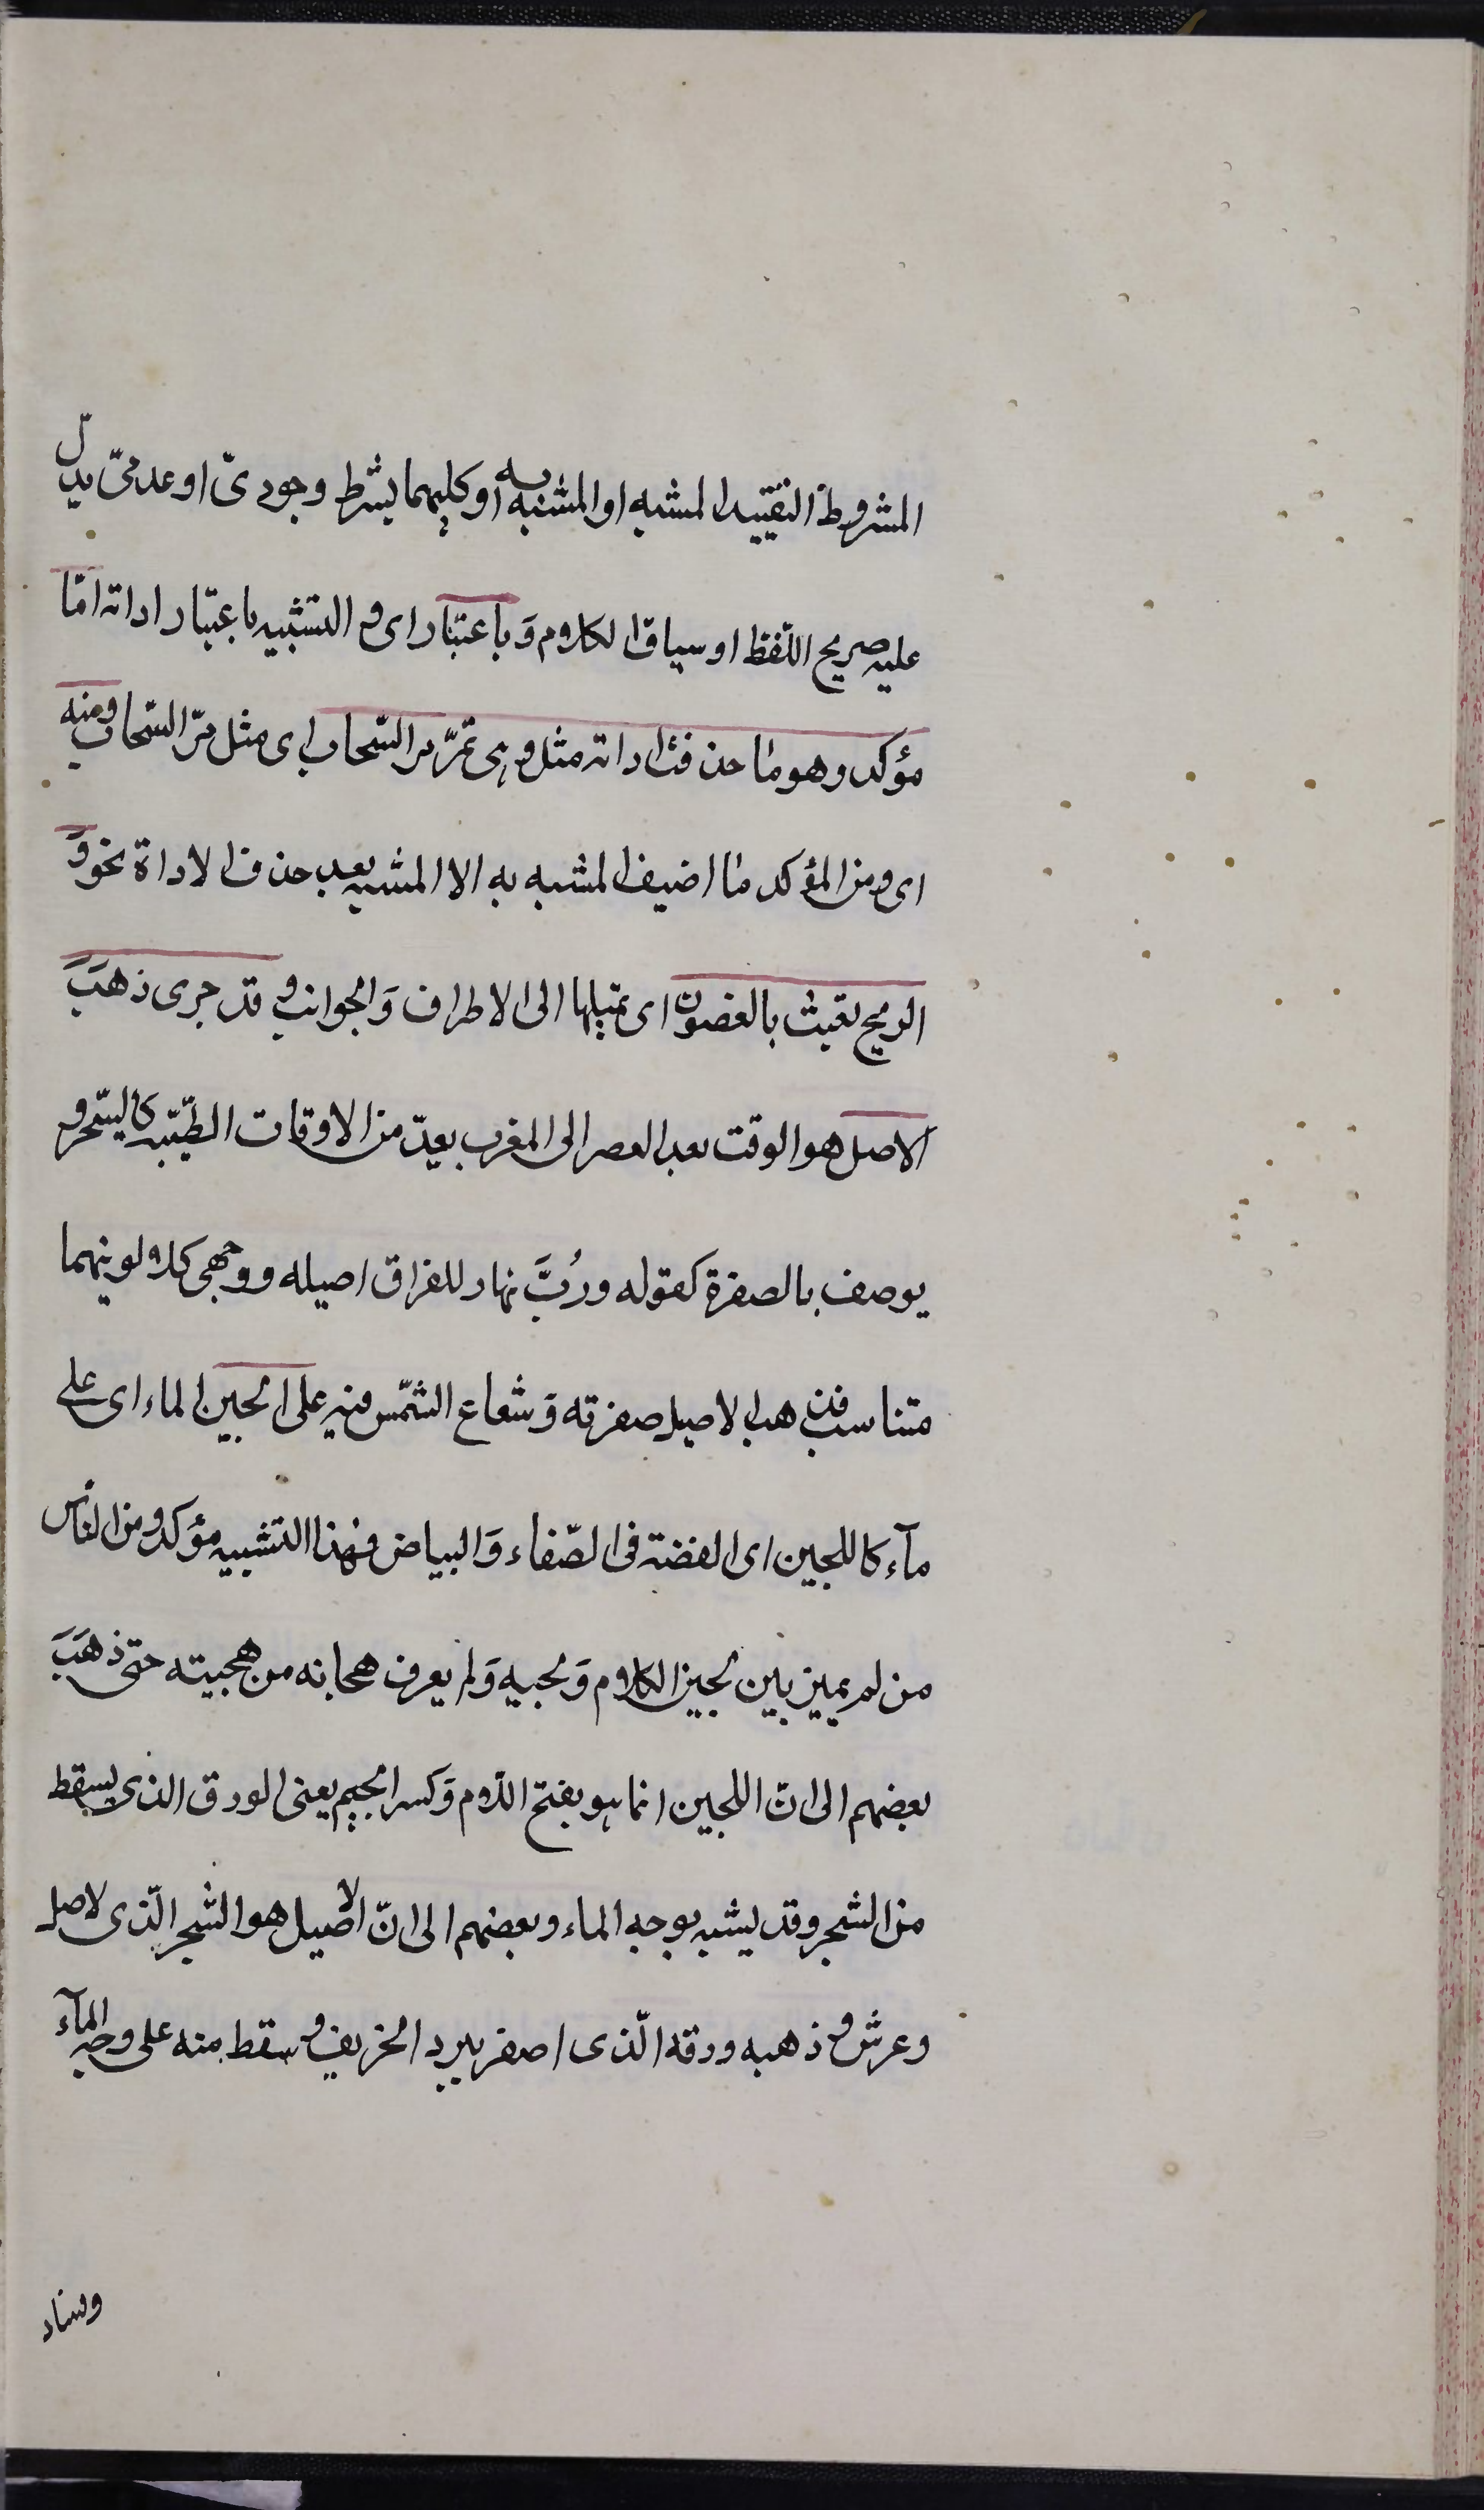 المشروط لتقييد المشبه او المشبه به او كليهما بشرط وجودىّ او عدمىّ يدلّ
عليه صريح اللّفظ او سياق الكلام وَباعتبار اى و التشبيه باعتبار اداته امّا
مؤكد وهو ما حذفت اداته مثل وهى تمرّ مر السّحاب اى مثل مرّ السّحاب ومنه
اى ومن المؤكد ما اضيف المشبه به الا المشبه بعد حذف الاداة نحو وَ
الريح تعبث بالغصون اى تميلها الى الاطراف وَالجوانب و قد جرى ذهَبَ
الاصل هو الوقت بعد العصر الى المغرب يعدّ من الاوقات الطّيّبه كالسّحر و
يوصف بالصفرة كقوله ورُبَّ نهار للفراق اصيله ووجهى كلا لونيهما
متناسب فذهب الاصيل صفرته وَشعاع الشّمس فيه على لجين الماء اى على
مآء كاللجين اى الفضة فى الصّفاء وَالبياض فهذا التشبيه مؤكد ومن الناس
من لم يميز بين لجين الكلام وَلجينه وَلم يعرف هجانه من هجينه حتى ذهَبَ
بعضهم الى انّ اللجين انما هو بفتح اللّام وَكسر الجيم يعنى الورق الذى يسقط
من الشجر وقد يشبه به وجه الماء وبعضهم الى انّ الاصيل هو الشجر الّذى لا اصل
وعرش و ذهبه ورقه الّذى اصفر ببرد الخريف و سقط منه على وجه المآء
وفساد